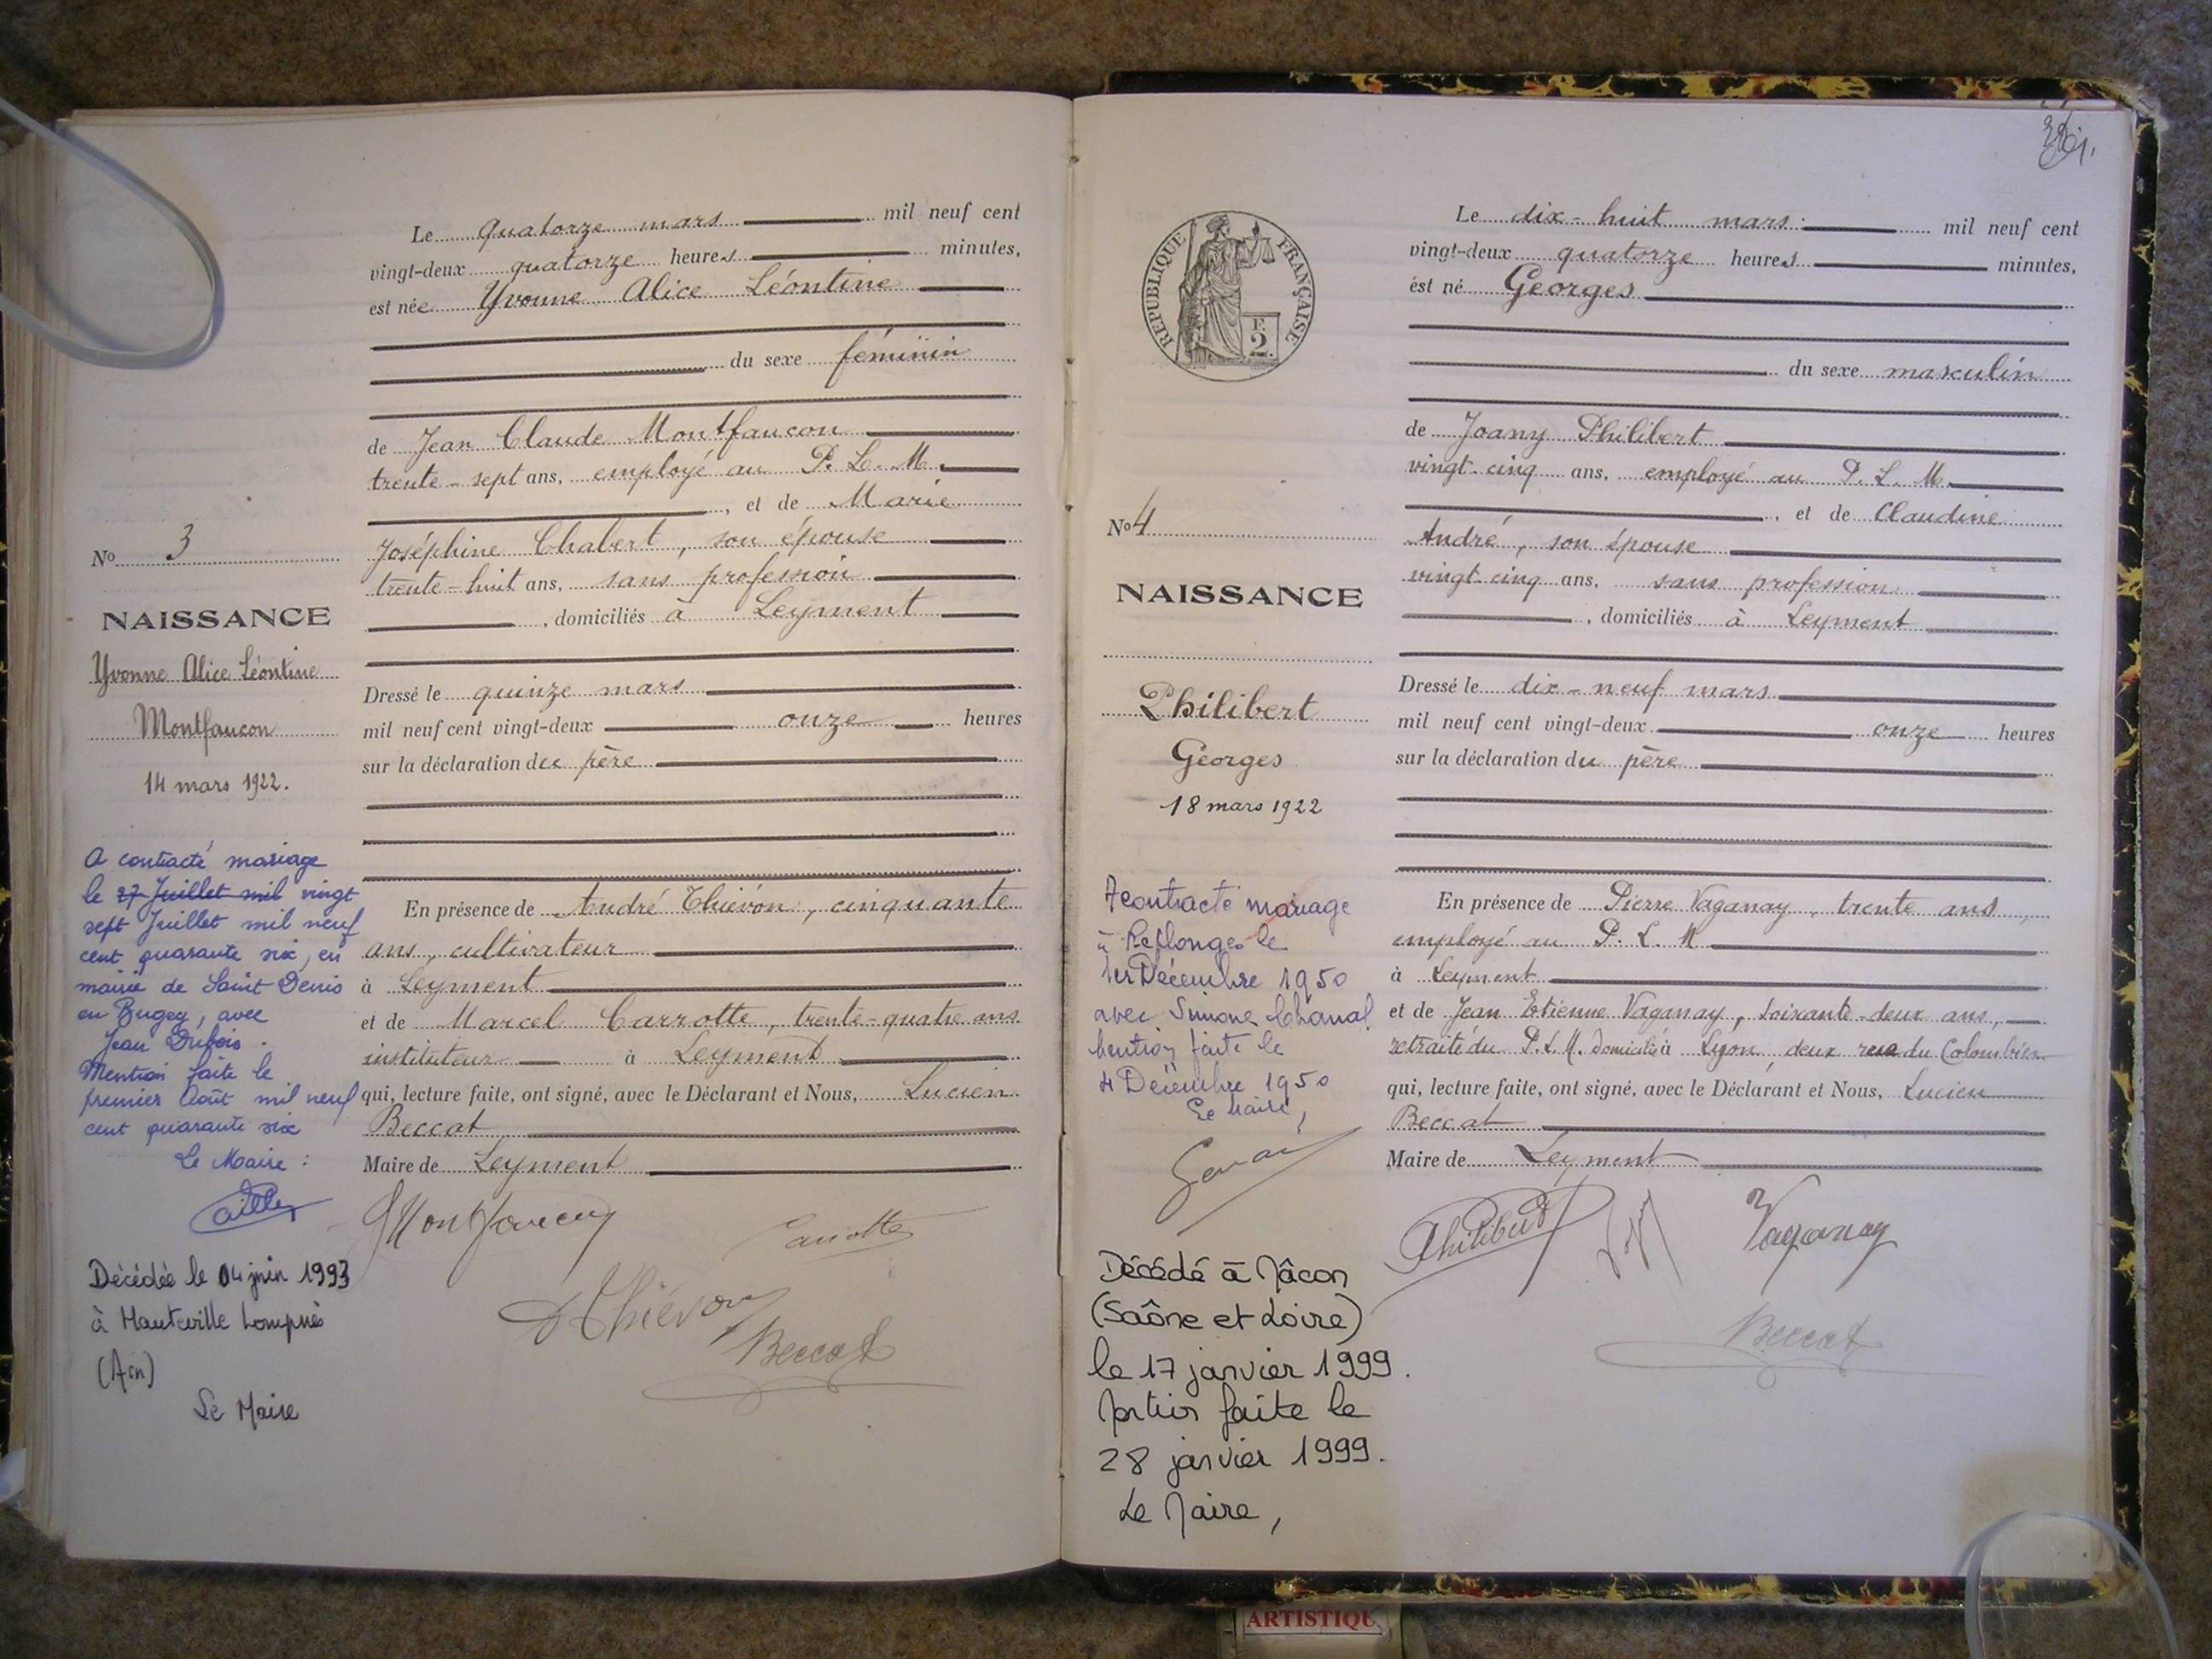 Le quatorze mars mil neuf cent
vingt-deux quatorze heures minutes,
est née Yvonne Alice Léontine
du sexe féminin
de Jean Claude Montfaucon
trente-sept ans, employé au P. L. M.
, et de Marie
Joséphine Chabert, son épouse
trente-huit ans, sans profession
, domiciliés à Leyment
Dressé le quinze mars
mil neuf cent vingt-deux onze heures
sur la déclaration du père
En présence de André Thiévon, cinquante
ans, cultivateur
à Leyment
et de Marcel Carrotte, trente-quatre ans
instituteur à Leyment
qui, lecture faite, ont signé, avec le Déclarant et Nous, Lucien
Beccat
Maire de Leyment
Montfaucon
Carrotte
Thiévon
Beccat
No 3
NAISSANCE
Yvonne Alice Léontine
Montfaucon
14 mars 1922.
A contracté mariage
le 27 Juillet mil vingt
sept Juillet mil neuf
cent quarante six, en
mairie de Saint Denis
en Bugey, avec
Jean Dubois.
Mention faite le
premier Août mil neuf
cent quarante six
Le Maire :
Décédée le 04 juin 1993
à Hauteville Lompnès
(Ain)
Le Maire
RÉPUBLIQUE FRANÇAISE
F.
2.
Le dix-huit mars mil neuf cent
vingt-deux quatorze heures minutes,
est né Georges
du sexe masculin
de Joany Philibert
vingt-cinq ans, employé au P. L. M.
, et de Claudine
André, son épouse
vingt-cinq ans, sans profession
, domiciliés à Leyment
Dressé le dix-neuf mars
mil neuf cent vingt-deux onze heures
sur la déclaration du père
En présence de Pierre Vaganay, trente ans,
employé au P. L. M
à Leyment
et de Jean Etienne Vaganay, soixante-deux ans,
retraité du P. L. M. domicilié à Lyon, deux rue du Colombier
qui, lecture faite, ont signé, avec le Déclarant et Nous, Lucien
Beccat
Maire de Leyment
Philibert
Vaganay
Beccat
No 4
NAISSANCE
Philibert
Georges
18 mars 1922
A contracté mariage
à Replonges le
1er Décembre 1950
avec Simone Chanal
Mention faite le
4 Décembre 1950
Le Maire,
Décédé à Mâcon
(Saône et Loire)
le 17 janvier 1999.
Mention faite le
28 janvier 1999.
Le Maire,
ARTISTIQU